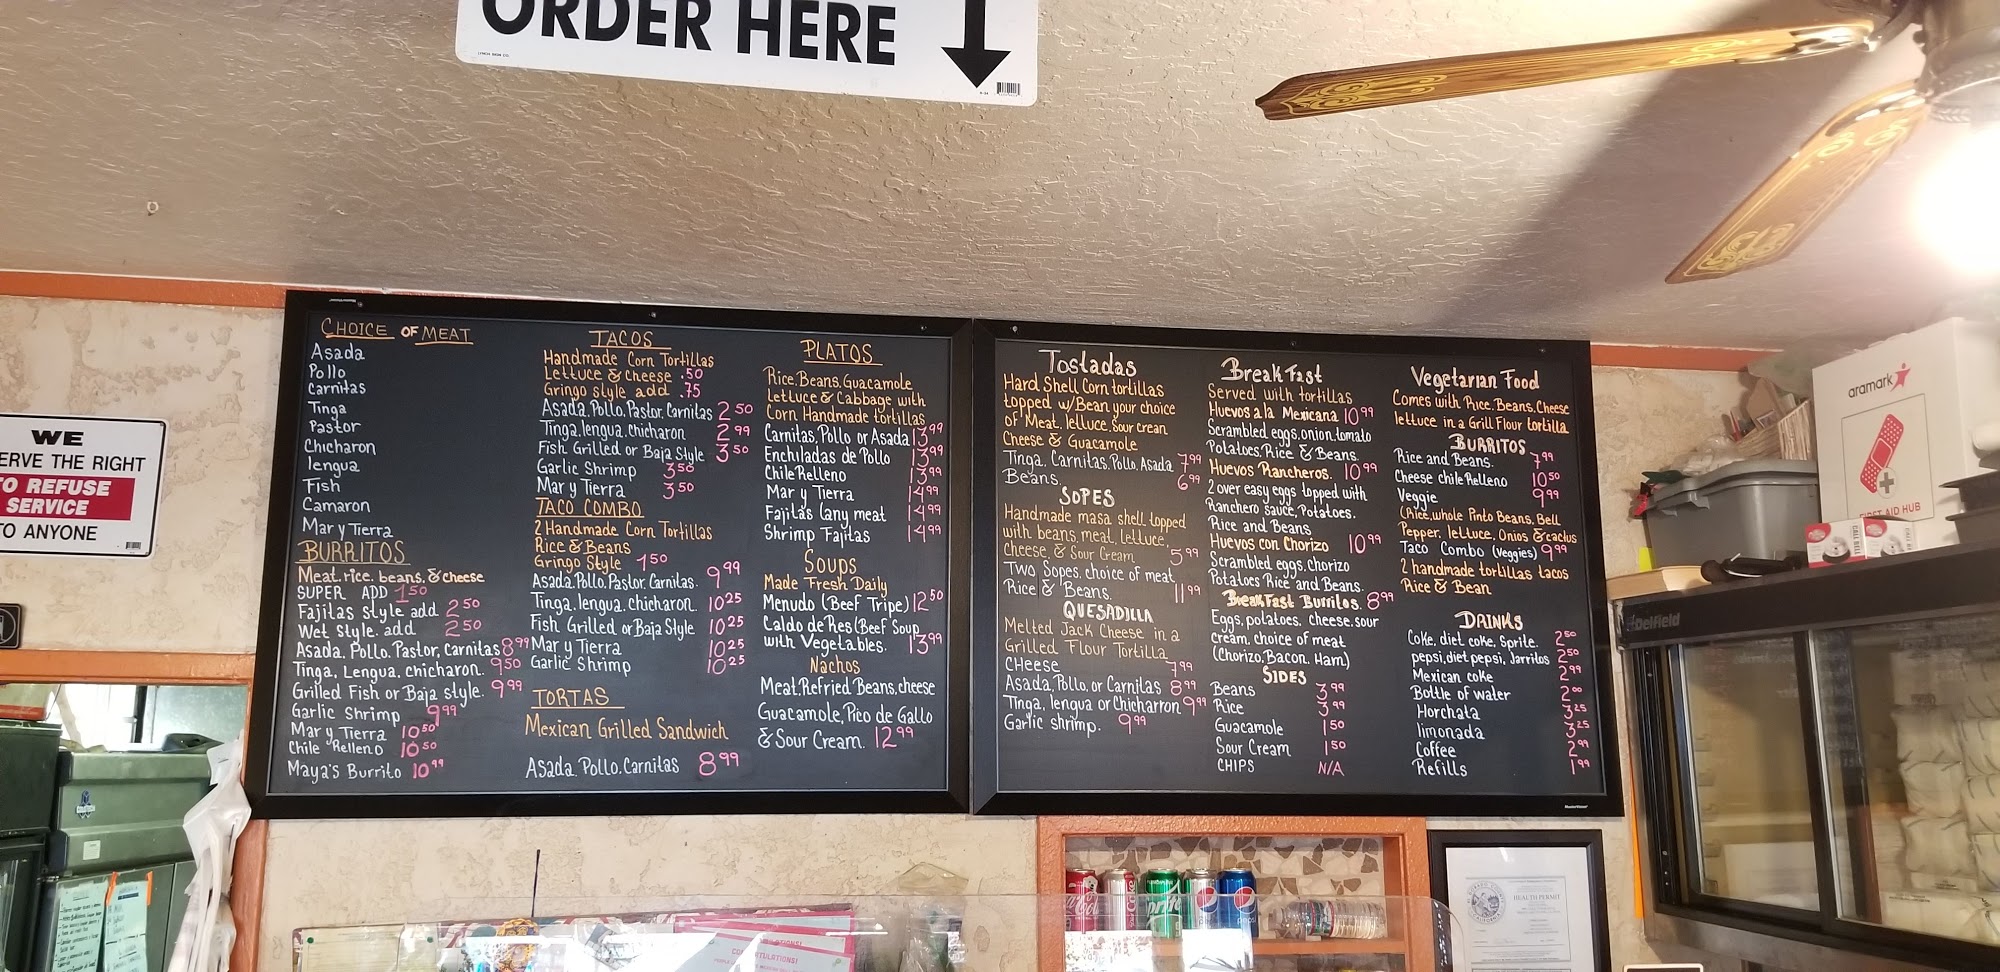 ORDER HERE
WE
ERVE THE RIGHT
TO REFUSE
SERVICE
TO ANYONE
CHOICE OF MEAT
Asada
Pollo
Carnitas
Tinga
Pastor
Chicharon
lengua
Fish
Camaron
Mar y Tierra
BURRITOS
Meat, rice, beans, & cheese
SUPER ADD 1.50
Fajitas Style add 2.50
Wet style. add 2.50
Asada, Pollo, Pastor, Carnitas 8.99
Tinga, Lengua, chicharon. 9.50
Grilled Fish or Baja style. 9.99
Garlic Shrimp 9.99
Mar y Tierra 10.50
Chile Relleno 10.50
Maya's Burrito 10.99
TACOS
Handmade Corn Tortillas
Lettuce & Cheese .50
Gringo style add .75
Asada, Pollo, Pastor, Carnitas 2.50
Tinga, lengua, chicharon 2.99
Fish Grilled or Baja Style 3.50
Garlic Shrimp 3.50
Mar y Tierra 3.50
TACO COMBO
2 Handmade Corn Tortillas
Rice & Beans
Gringo Style 1.50
Asada, Pollo, Pastor, Carnitas. 9.99
Tinga, lengua, chicharon. 10.25
Fish Grilled or Baja Style 10.25
Mar y Tierra 10.25
Garlic Shrimp 10.25
TORTAS
Mexican Grilled Sandwich
Asada, Pollo, Carnitas 8.99
PLATOS
Rice, Beans, Guacamole,
Lettuce & Cabbage with
Corn Handmade tortillas
Carnitas, Pollo or Asada 13.99
Enchiladas de Pollo 13.99
Chile Relleno 13.99
Mar y Tierra 14.99
Fajitas (any meat 14.99
Shrimp Fajitas 14.99
Soups
Made Fresh Daily
Menudo (Beef Tripe) 12.50
Caldo de Res (Beef Soup
with Vegetables. 13.99
Nachos
Meat, Refried Beans, cheese
Guacamole, Pico de Gallo
& Sour Cream. 12.99
Tostadas
Hard Shell Corn tortillas
topped w/Bean your choice
of Meat, lettuce, Sour crean
Cheese & Guacamole
Tinga, Carnitas, Pollo, Asada 7.99
Beans. 6.99
SOPES
Handmade masa shell topped
with beans, meat, lettuce,
Cheese, & Sour Cream 5.99
Two Sopes, choice of meat
Rice & Beans. 11.99
QUESADILLA
Melted Jack Cheese in a
Grilled Flour Tortilla
CHeese 7.99
Asada, Pollo, or Carnitas 8.99
Tinga, lengua or Chicharron 9.99
Garlic shrimp. 9.99
BreakFast
Served with tortillas
Huevos a la Mexicana 10.99
Scrambled eggs, onion, tomato
Potatoes, Rice & Beans.
Huevos Rancheros. 10.99
2 over easy eggs topped with
Ranchero sauce, Potatoes.
Rice and Beans
Huevos con Chorizo 10.99
Scrambled eggs, chorizo
Potatoes Rice and Beans.
BreakFast Burritos. 8.99
Eggs, potatoes, cheese, sour
cream, choice of meat
(Chorizo, Bacon, Ham)
SIDES
Beans 3.99
Rice 3.99
Guacamole 1.50
Sour Cream 1.50
CHIPS N/A
Vegetarian Food
Comes with Rice, Beans, Cheese
lettuce in a Grill Flour tortilla
BURRITOS
Rice and Beans. 7.99
Cheese chile Relleno 10.50
Veggie 9.99
(Rice, whole Pinto Beans, Bell
Pepper, lettuce, Onios & cactus
Taco Combo (Veggies) 9.99
2 handmade tortillas tacos
Rice & Bean
DRINKS
Coke, diet coke, Sprite. 2.50
pepsi, diet pepsi, Jarritos 2.50
Mexican coke 2.99
Bottle of water 2.00
Horchata 3.25
limonada 3.25
Coffee 2.99
Refills 1.99
aramark
FIRST AID HUB
Delfield
HEALTH PERMIT
Sprite
pepsi